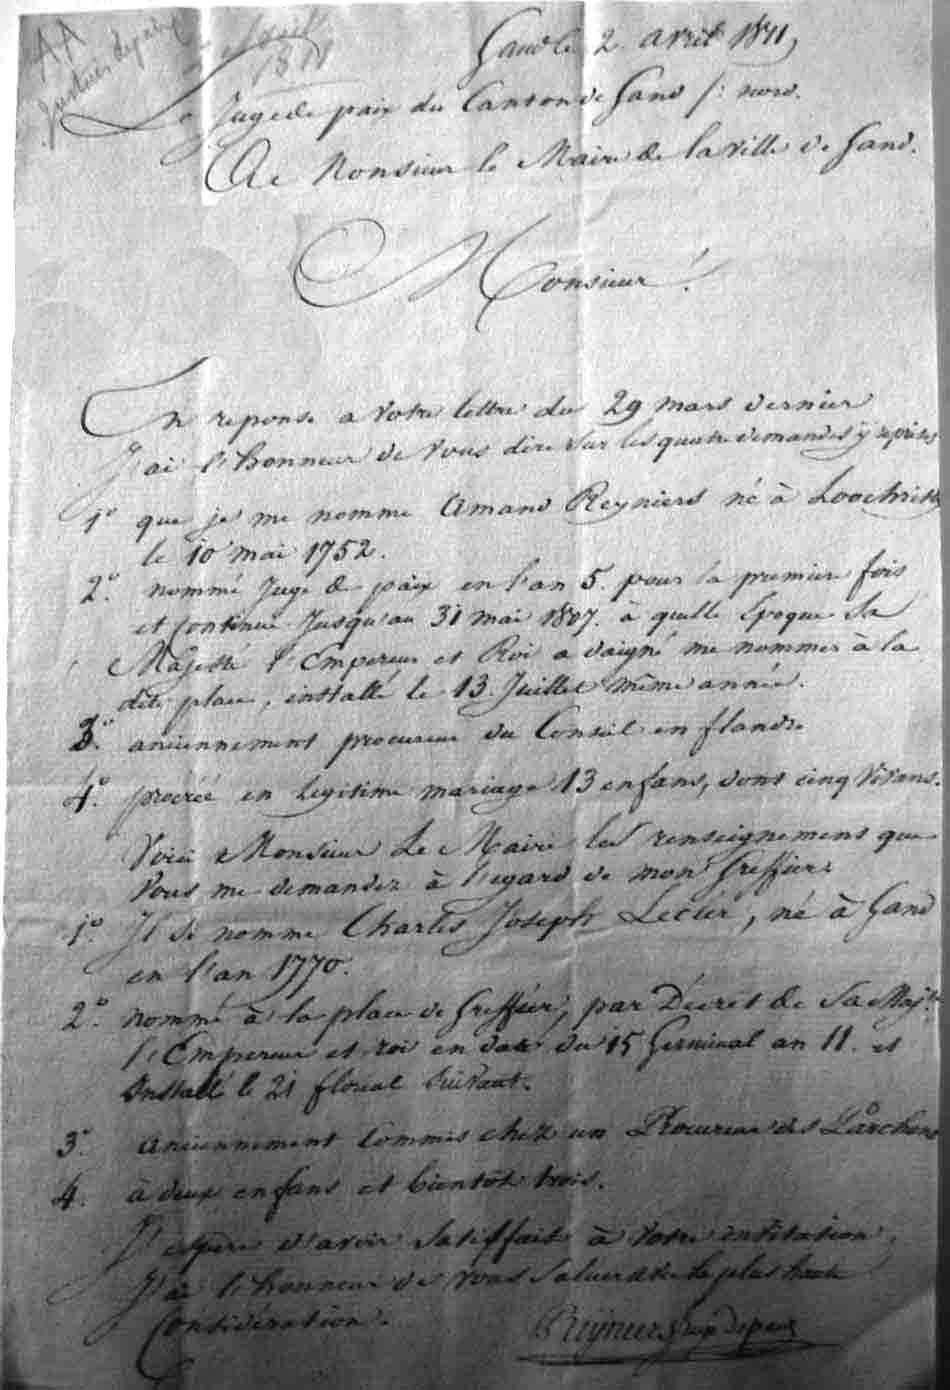 AA
Justices de paix
2 Avril
1811
Gand le 2 avril 1811,
Le Juge de paix du Canton de Gand /: nord.
A Monsieur le Maire de la ville de Gand.
Monsieur!
En reponse a votre lettre du 29 mars dernier
J'ai l'honneur de vous dire sur les quatre demandes y reprises
1° que je me nomme Amand Reyniers né à Loochristi
le 10 mai 1752.
2° nommé Juge de paix en l'an 5. pour la premiere fois
et continué Jusqu'au 31 mai 1807. à quelle Epoque Sa
Majesté l'Empereur et Roi a daigné me nommer à la
dite place, installé le 13. Juillet même année.
3° anciennement procureur du Conseil en flandre
4° procréé en legitime mariage 13 enfans, dont cinq vivans.
Voici Monsieur Le Maire les renseignemens que
vous me demandez à l'egard de mon Greffier
1° Il se nomme Charles Joseph Leclér, né à Gand
en l'an 1770.
2° nommé à la place de Greffier, par Décret de Sa Majté
l'Empereur et roi en date du 15 Germinal an 11. et
Installé le 21 floreal suivant.
3° anciennement Commis chez un Procureur des Parchons
4. à deux enfans et bientôt trois.
J'espere d'avoir satisfait à votre invitation,
J'ai l'honneur de vous saluer avec la plus haute
Considération.
Reyniers juge de paix